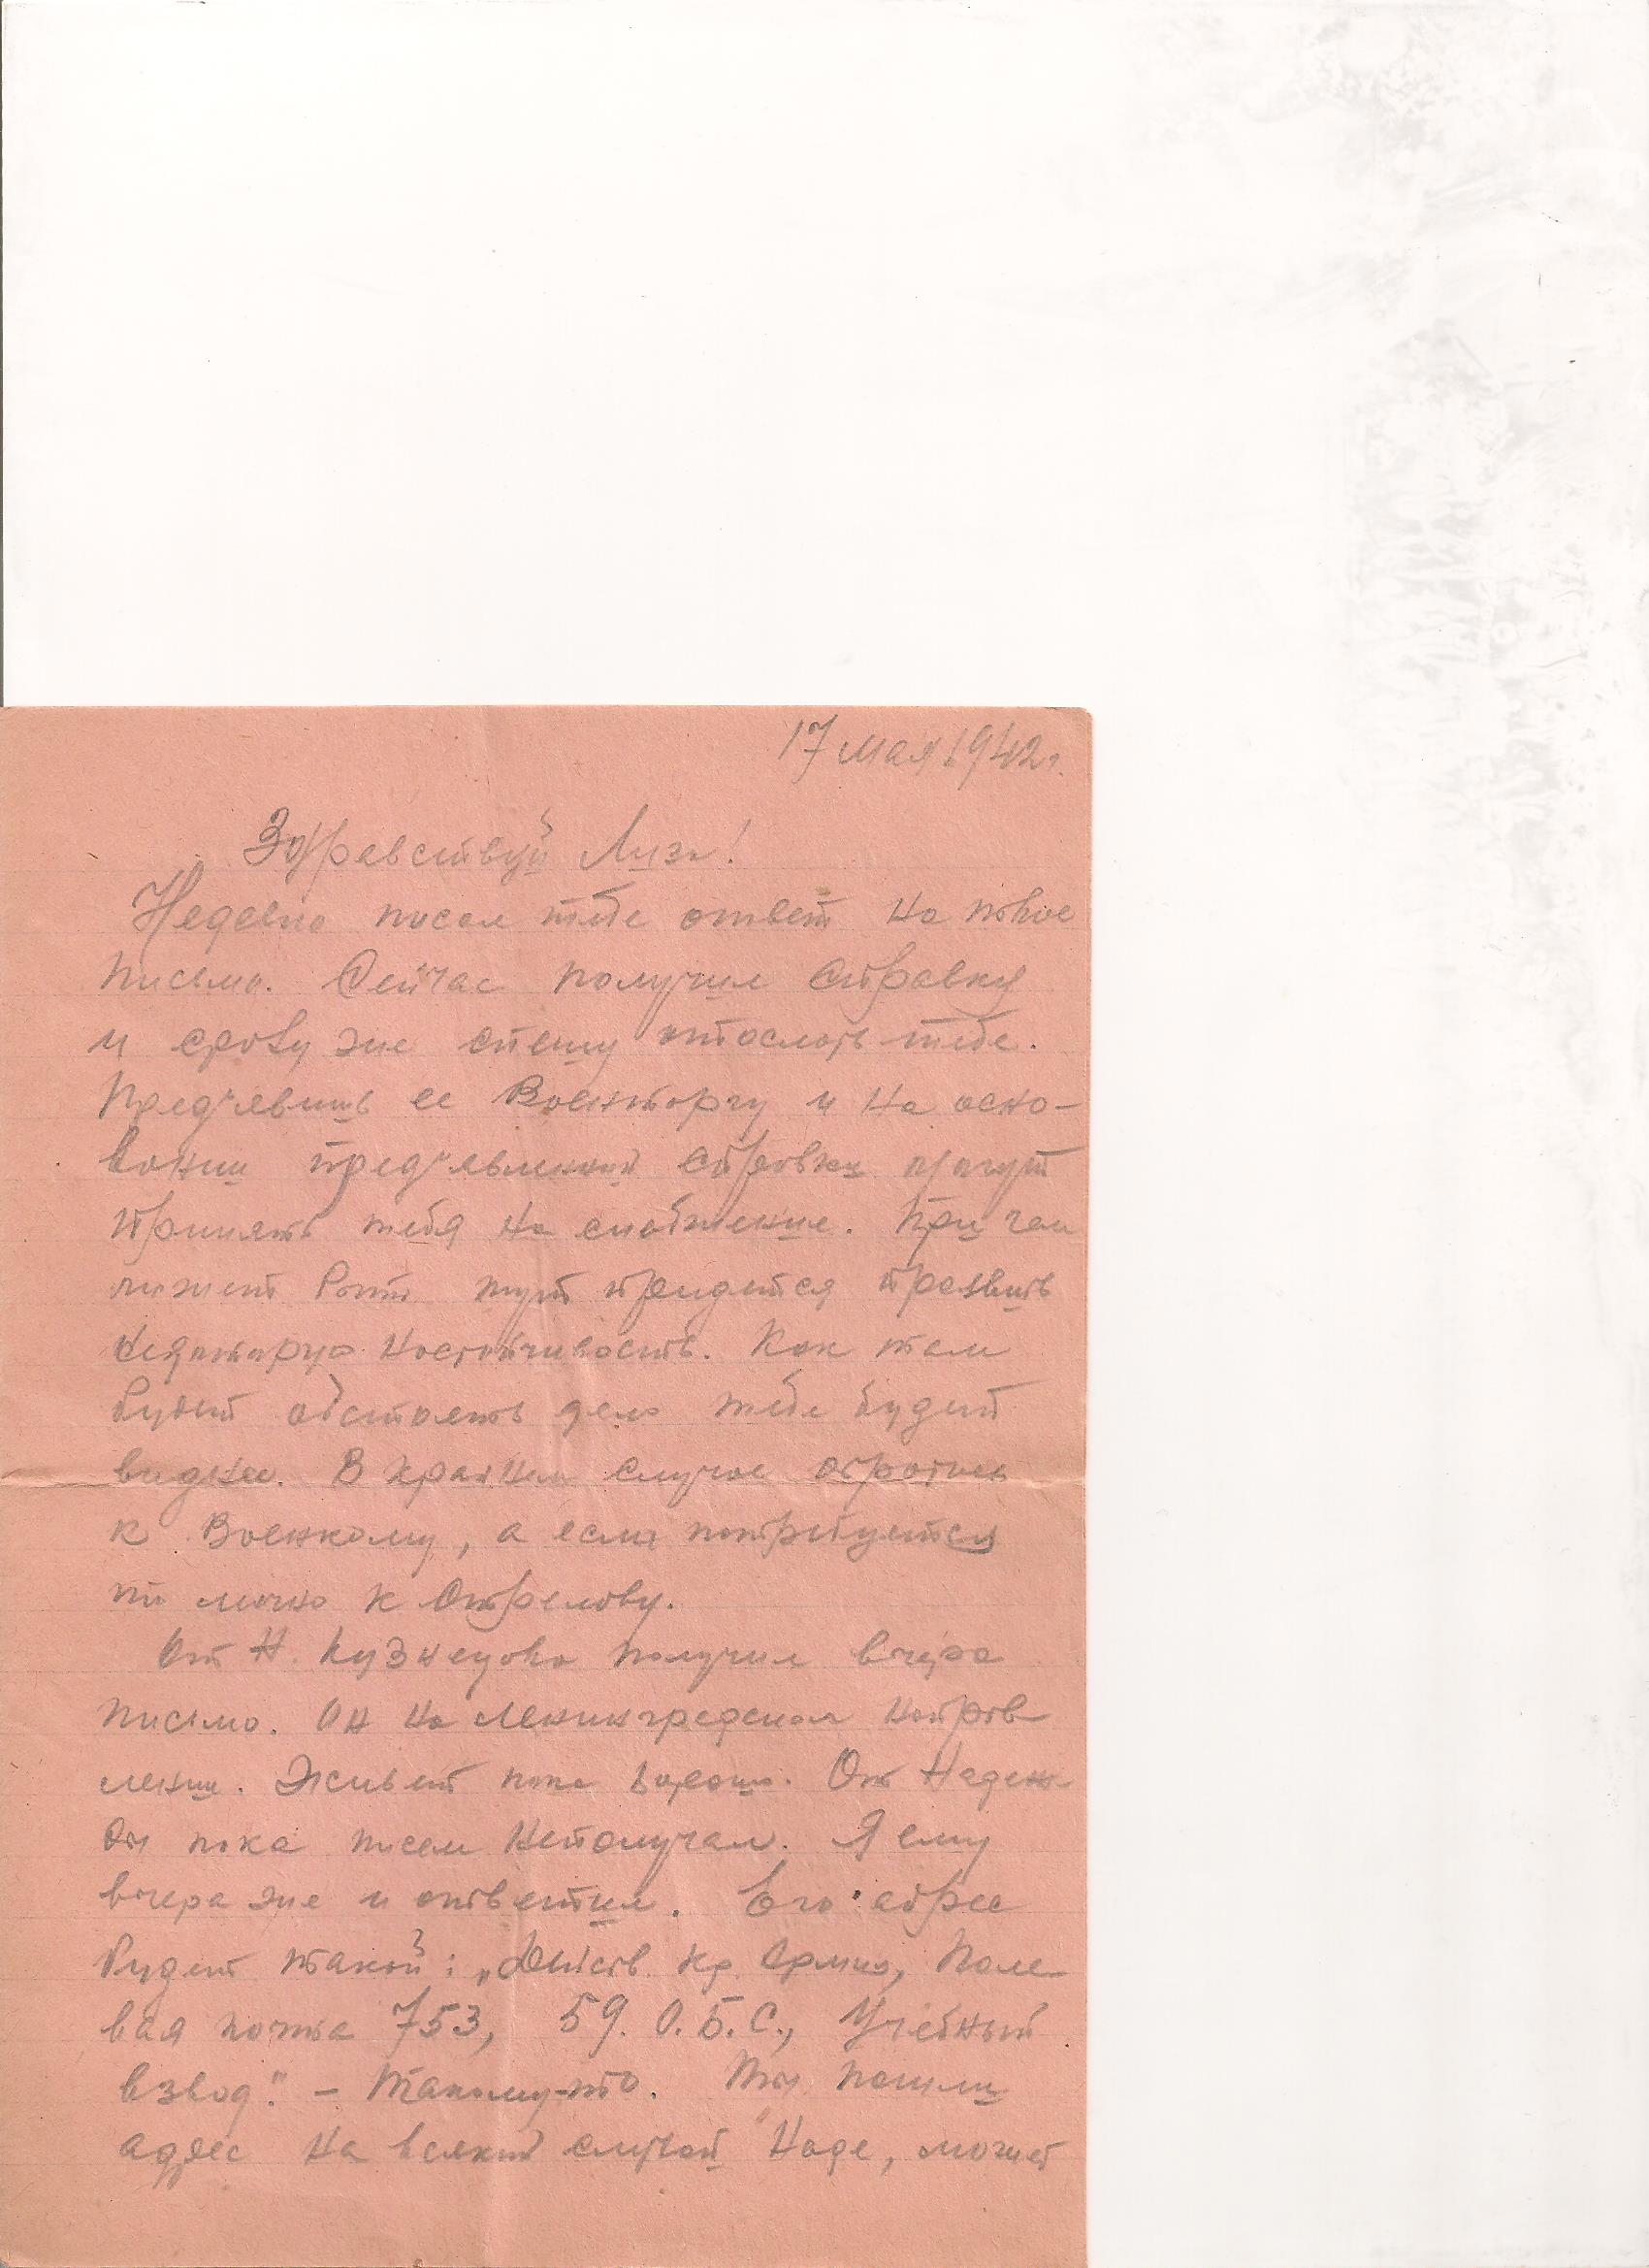 17 мая 1942г.
Здравствуй Лиза!
Недавно писал тебе ответ на твое
письмо. Сейчас получил справку
и сразу же спешу отослать тебе.
Предъявишь ее Военторгу и на осно-
вании предъявленной справки могут
принять тебя на снабжение. При чем
может быть тут придется проявить
некоторую настойчивость. Как там
будет обстоять дело тебе будет
виднее. В крайнем случае обратись
к Военкому, а если потребуется
то лично к Стрелову.
От Н. Кузнецова получил вчера
письмо. Он на Ленинградском направ-
лении. Живет пока хорошо. От Надеж-
ды пока писем неполучал. Я ему
вчера же и ответил. Его адрес
будет такой: „Действ. Кр. Армия, Поле-
вая почта 753, 59. О.Б.С., Учебный
взвод." – Такому-то. Ты пошли
адрес на всякий случай Наде, может